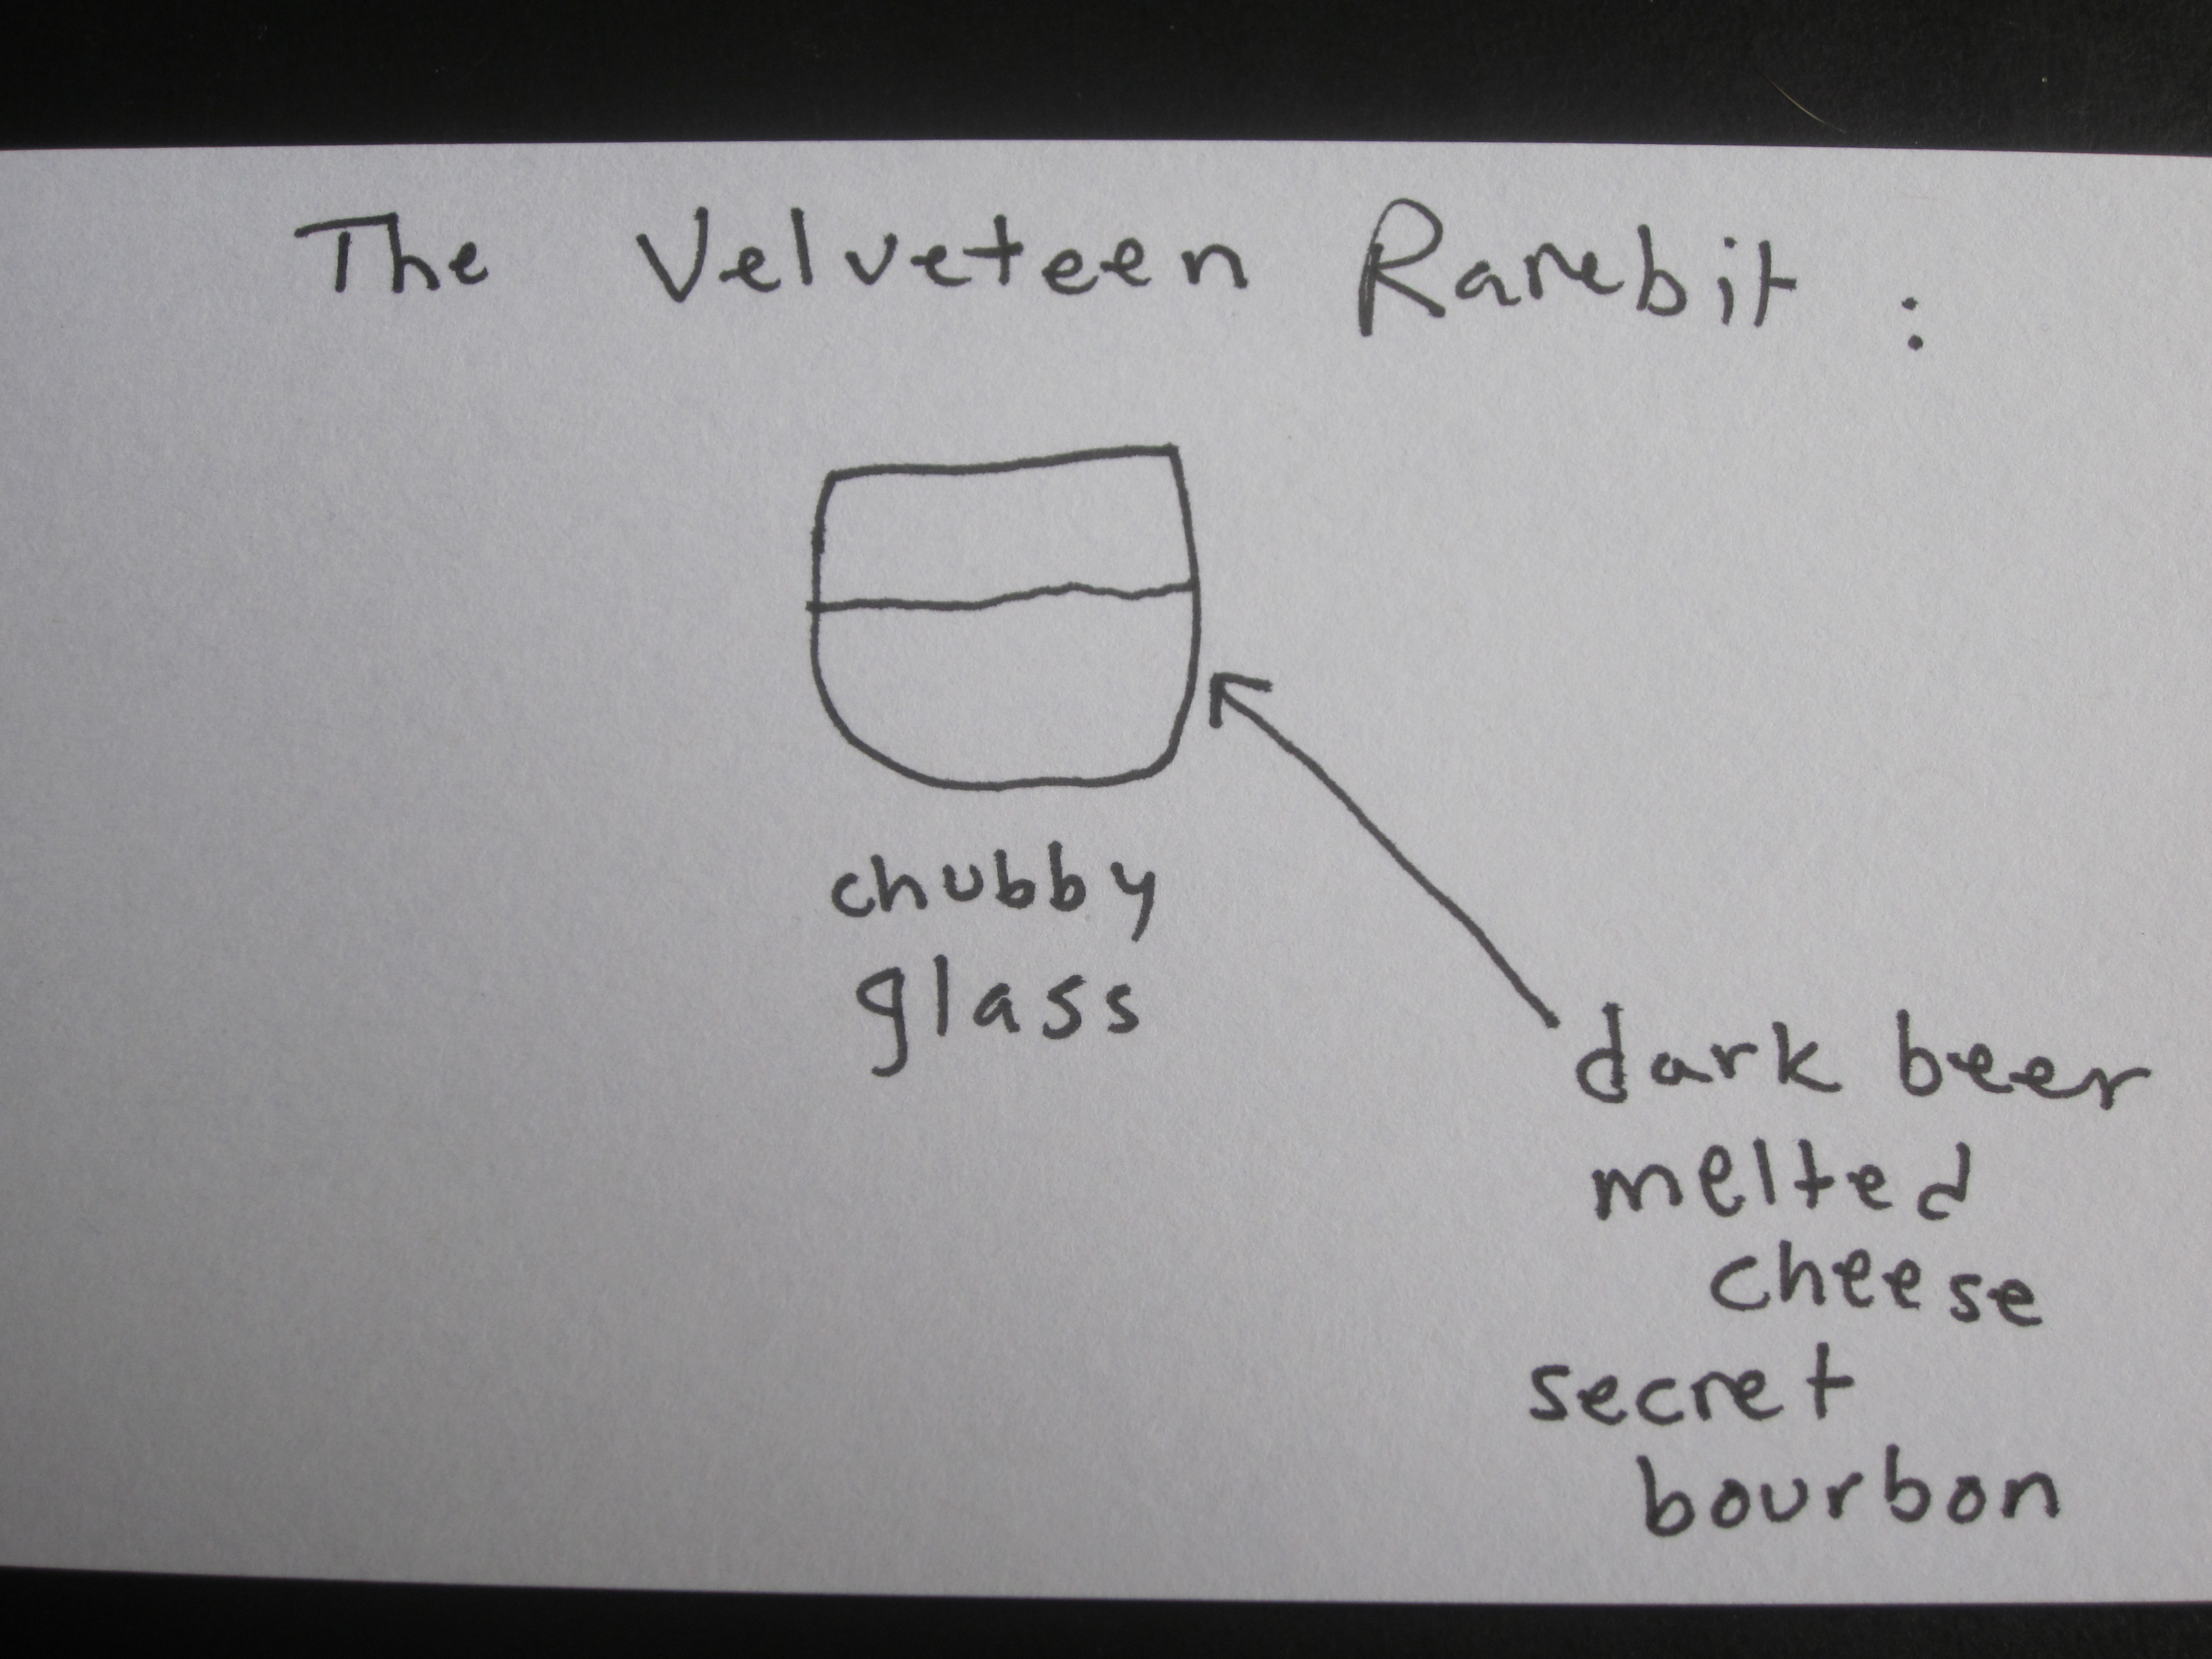 The Velveteen Rarebit :
chubby
glass
dark beer
melted
cheese
secret
bourbon